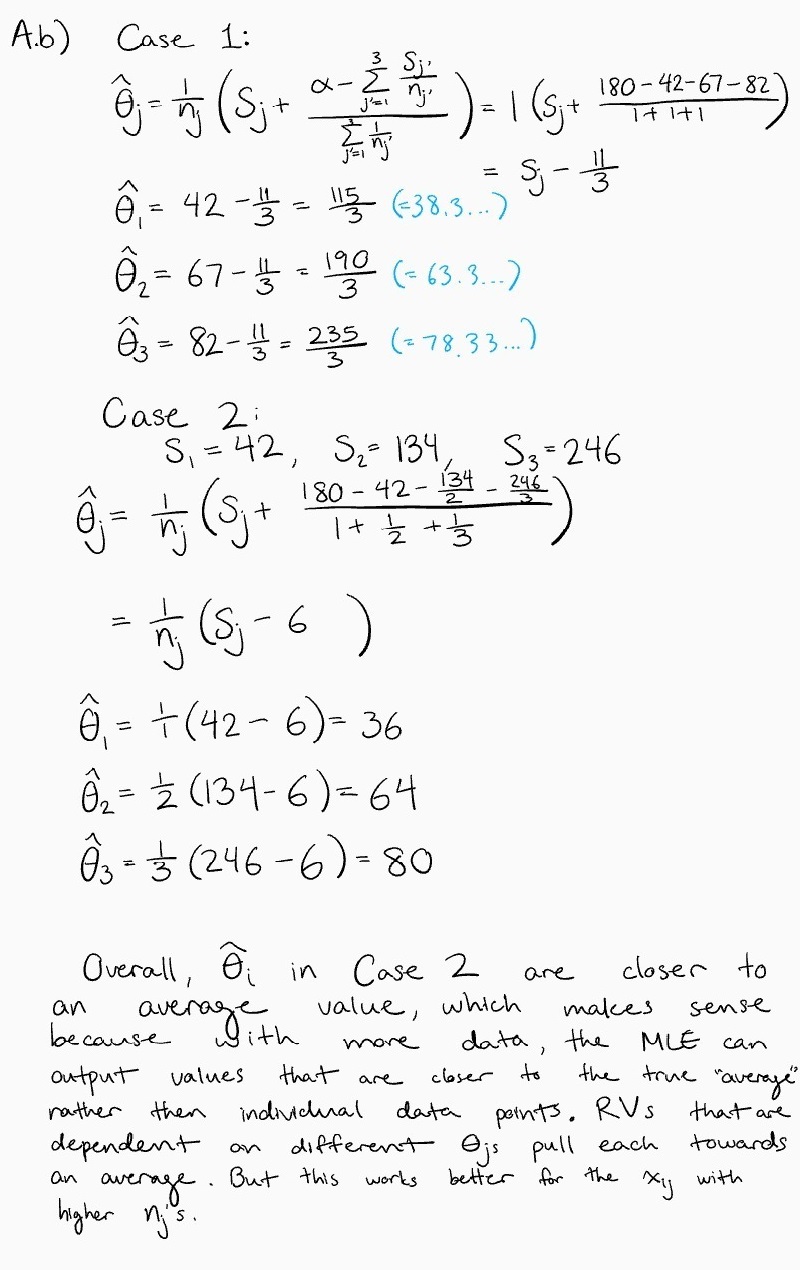 A.b) Case 1:
θ̂_j = 1/n_j (S_j + (α - Σ_{j'=1}^{3} S_{j'}/n_{j'}) / (Σ_{j'=1}^{3} 1/n_{j'})) = 1 (S_j + (180-42-67-82)/(1+1+1))
= S_j - 11/3
θ̂_1 = 42 - 11/3 = 115/3 (=38.3...)
θ̂_2 = 67 - 11/3 = 190/3 (= 63.3...)
θ̂_3 = 82 - 11/3 = 235/3 (=78.33...)
Case 2:
S_1 = 42, S_2 = 134, S_3 = 246
θ̂_j = 1/n_j (S_j + (180 - 42 - 134/2 - 246/3)/(1 + 1/2 + 1/3))
= 1/n_j (S_j - 6 )
θ̂_1 = 1/1 (42 - 6) = 36
θ̂_2 = 1/2 (134 - 6) = 64
θ̂_3 = 1/3 (246 - 6) = 80
Overall, θ̂_i in Case 2 are closer to
an average value, which makes sense
because with more data, the MLE can
output values that are closer to the true "average"
rather then individual data points. RVs that are
dependent on different θ_js pull each towards
an average. But this works better for the x_ij with
higher n_j's.